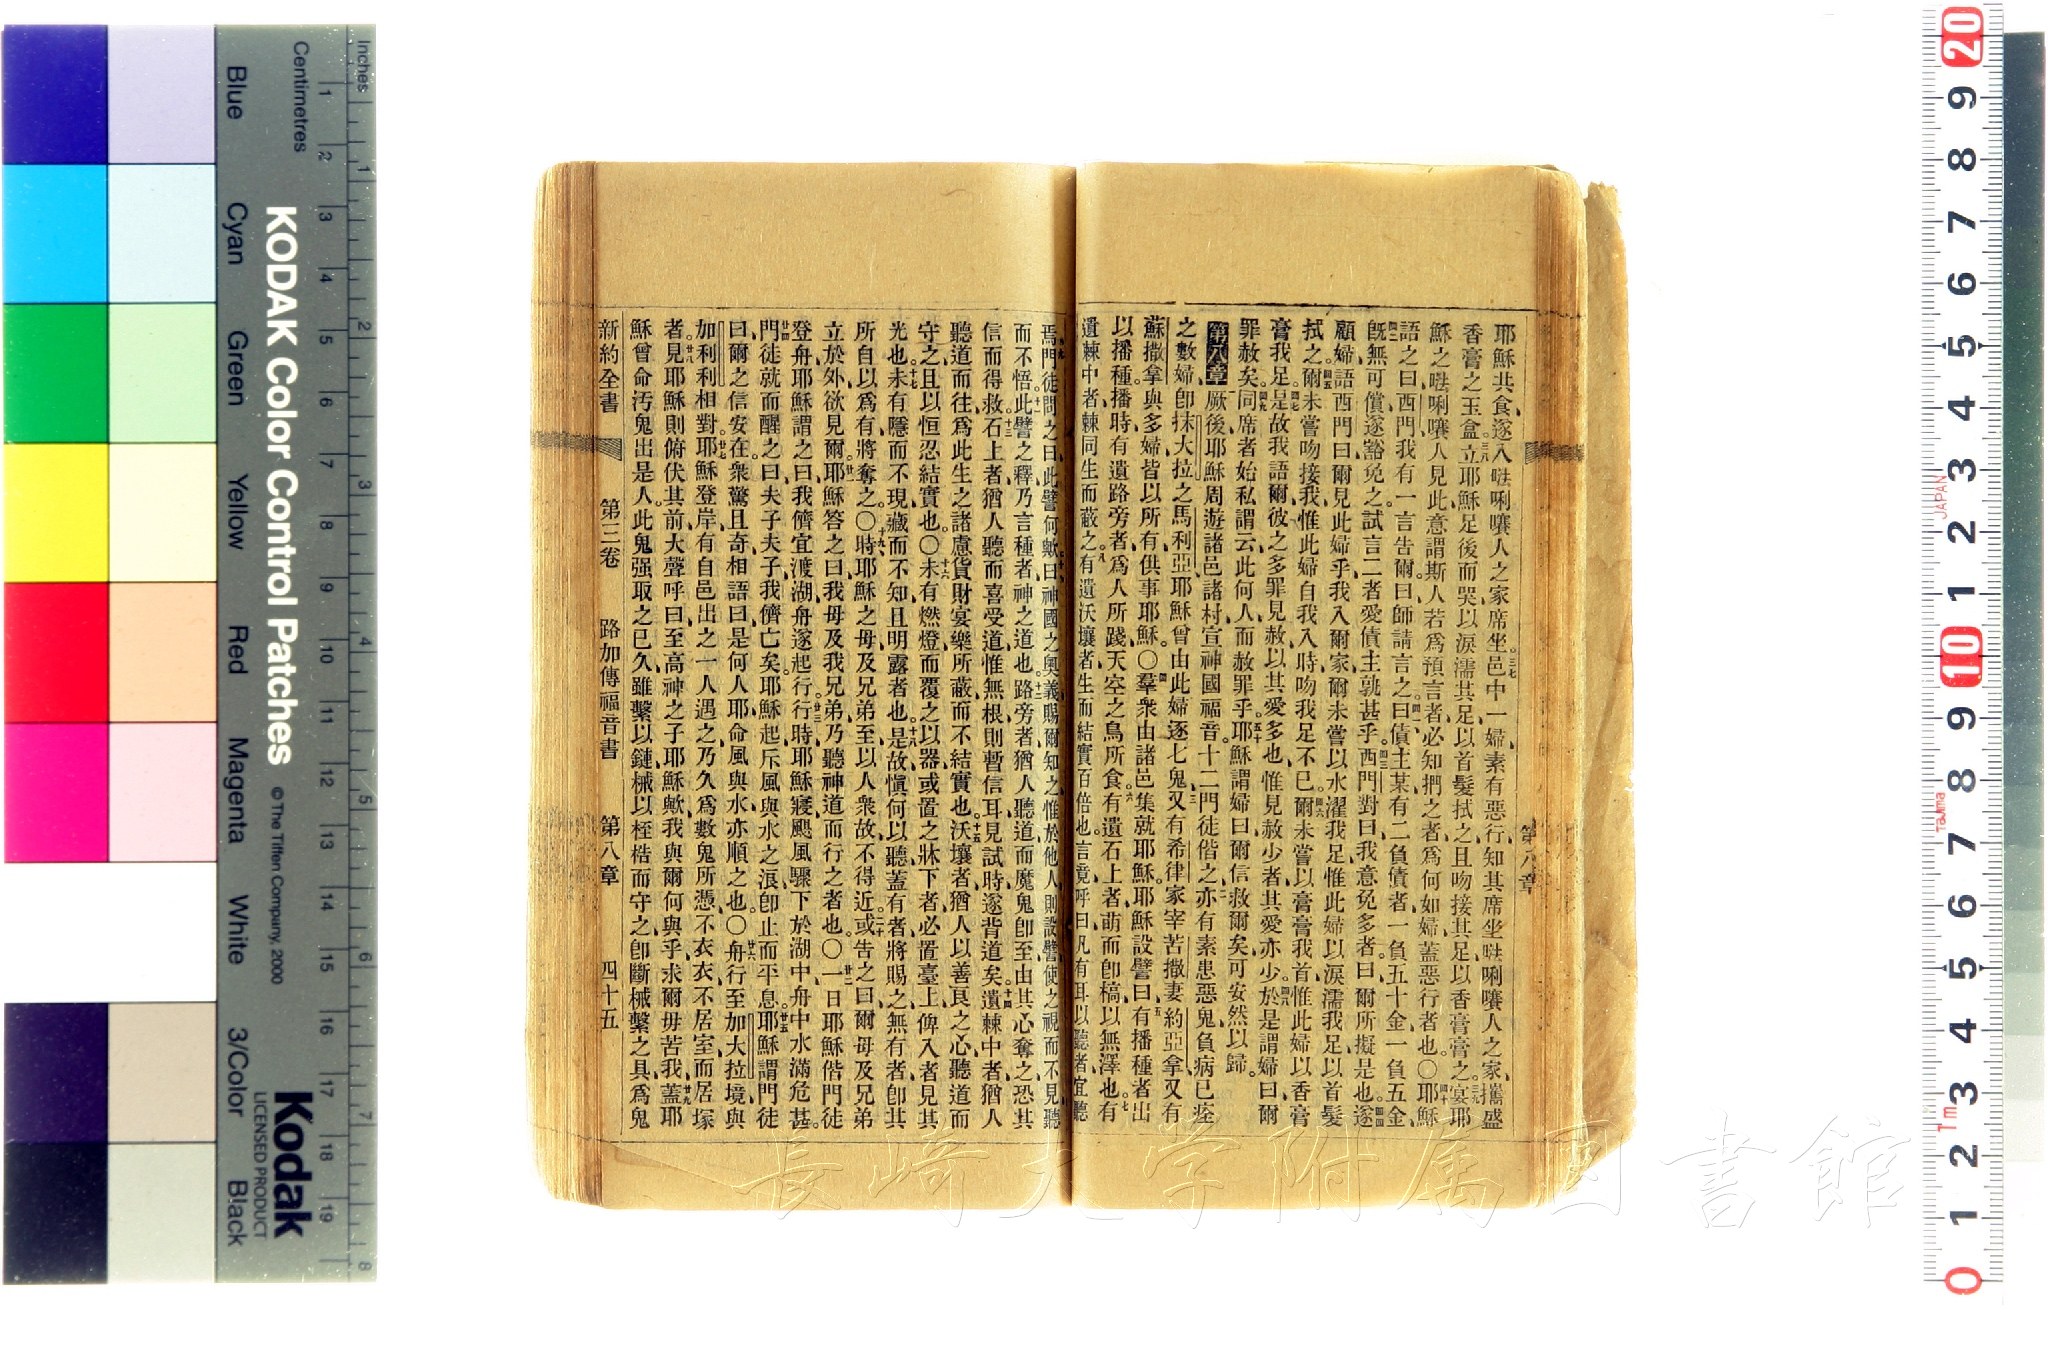 耶穌共食遂入𠵽唎㘓人之家席坐三七邑中一婦素有惡行知其席坐𠵽唎㘓人之家攜盛
香膏之玉盒三八立耶穌足後而哭以淚濡其足以首髮拭之且吻接其足以香膏膏之三九宴耶
穌之𠵽唎㘓人見此意謂斯人若爲預言者必知捫之者爲何如婦蓋惡行者也〇四十耶穌
語之曰西門我有一言告爾曰師請言之四一曰債主某有二負債者一負五十金一負五金
四二旣無可償遂豁免之試言二者愛債主孰甚乎四三西門對曰我意免多者曰爾所擬是也四四遂
顧婦語西門曰爾見此婦乎我入爾家爾未嘗以水濯我足惟此婦以淚濡我足以首髮
拭之四五爾未嘗吻接我惟此婦自我入時吻我足不已四六爾未嘗以膏膏我首惟此婦以香膏
膏我足四七是故我語爾彼之多罪見赦以其愛多也惟見赦少者其愛亦少四八於是謂婦曰爾
罪赦矣四九同席者始私謂云此何人而赦罪乎五十耶穌謂婦曰爾信救爾矣可安然以歸
第八章 厥後耶穌周遊諸邑諸村宣神國福音十二門徒偕之二亦有素患惡鬼負病已痊
之數婦卽抹大拉之馬利亞耶穌曾由此婦逐七鬼三又有希律家宰苦撒妻約亞拿又有
蘇撒拿與多婦皆以所有供事耶穌〇四羣衆由諸邑集就耶穌耶穌設譬曰五有播種者出
以播種播時有遺路旁者爲人所踐天空之鳥所食六有遺石上者萌而卽槁以無澤也七有
遺棘中者棘同生而蔽之八有遺沃壤者生而結實百倍也言竟呼曰凡有耳以聽者宜聽
第八章
焉九門徒問之曰此譬何歟十曰神國之奧義賜爾知之惟於他人則設譬使之視而不見聽
而不悟十一此譬之釋乃言種者神之道也十二路旁者猶人聽道而魔鬼卽至由其心奪之恐其
信而得救十三石上者猶人聽而喜受道惟無根則暫信耳見試時遂背道矣十四遺棘中者猶人
聽道而往爲此生之諸慮貨財宴樂所蔽而不結實也十五沃壤者猶人以善良之心聽道而
守之且以恒忍結實也〇十六未有燃燈而覆之以器或置之牀下者必置臺上俾入者見其
光也十七未有隱而不現藏而不知且明露者也十八是故愼何以聽蓋有者將賜之無有者卽其
所自以爲有將奪之〇十九時耶穌之母及兄弟至以人衆故不得近二十或告之曰爾母及兄弟
立於外欲見爾廿一耶穌答之曰我母及我兄弟乃聽神道而行之者也〇廿二一日耶穌偕門徒
登舟耶穌謂之曰我儕宜渡湖舟遂起行廿三行時耶穌寢颶風驟下於湖中舟中水滿危甚
廿四門徒就而醒之曰夫子夫子我儕亡矣耶穌起斥風與水之浪卽止而平息廿五耶穌謂門徒
曰爾之信安在衆驚且奇相語曰是何人耶命風與水亦順之也〇廿六舟行至加大拉境與
加利利相對廿七耶穌登岸有自邑出之一人遇之乃久爲數鬼所憑不衣衣不居室而居塚
者廿八見耶穌則俯伏其前大聲呼曰至高神之子耶穌歟我與爾何與乎求爾毋苦我廿九蓋耶
穌曾命汚鬼出是人此鬼强取之已久雖繫以鏈械以桎梏而守之卽斷械繫之具爲鬼
新約全書 第三卷 路加傳福音書 第八章 四十五
長崎大学附属図書館
Inches
Centimetres
KODAK Color Control Patches
© The Tiffen Company, 2000
Blue Cyan Green Yellow Red Magenta White 3/Color Black
Kodak
LICENSED PRODUCT
1 2 3 4 5 6 7 8 9 10 11 12 13 14 15 16 17 18 19
1 2 3 4 5 6 7 8
20 9 8 7 6 5 4 3 2 1 10 9 8 7 6 5 4 3 2 1 0
JAPAN
Tajima
Tm